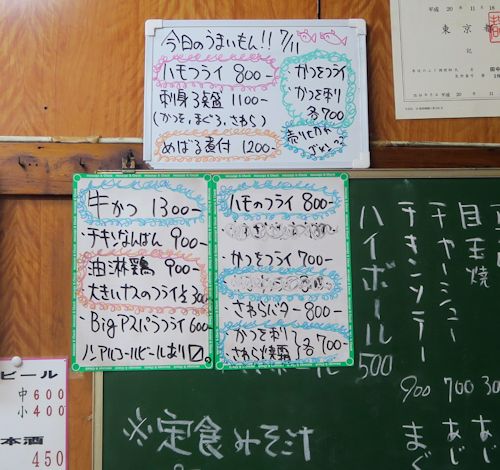 今日のうまいもん!! 7/11
ハモフライ 800-
刺身3点盛 1100-
(かつを,まぐろ,さわら)
めばる煮付 1200-
かつをフライ
かつを刺
各700
売り切れ
ごめん
牛かつ 1300-
チキンなんばん 900-
油淋鶏 900-
大きいナスのフライ
・Bigアスパラフライ 600
ノンアルコールビールあり
ハモのフライ 800-
かつをフライ 700-
・さわらバター 800-
・かつを刺
各700-
平成 20 年 11 月 18
東京都
記
目玉焼
チャーシュー 700
チキンソテー 900
ハイボール 500
※定食みそ汁
ビール
中 600
小 400
本酒
450